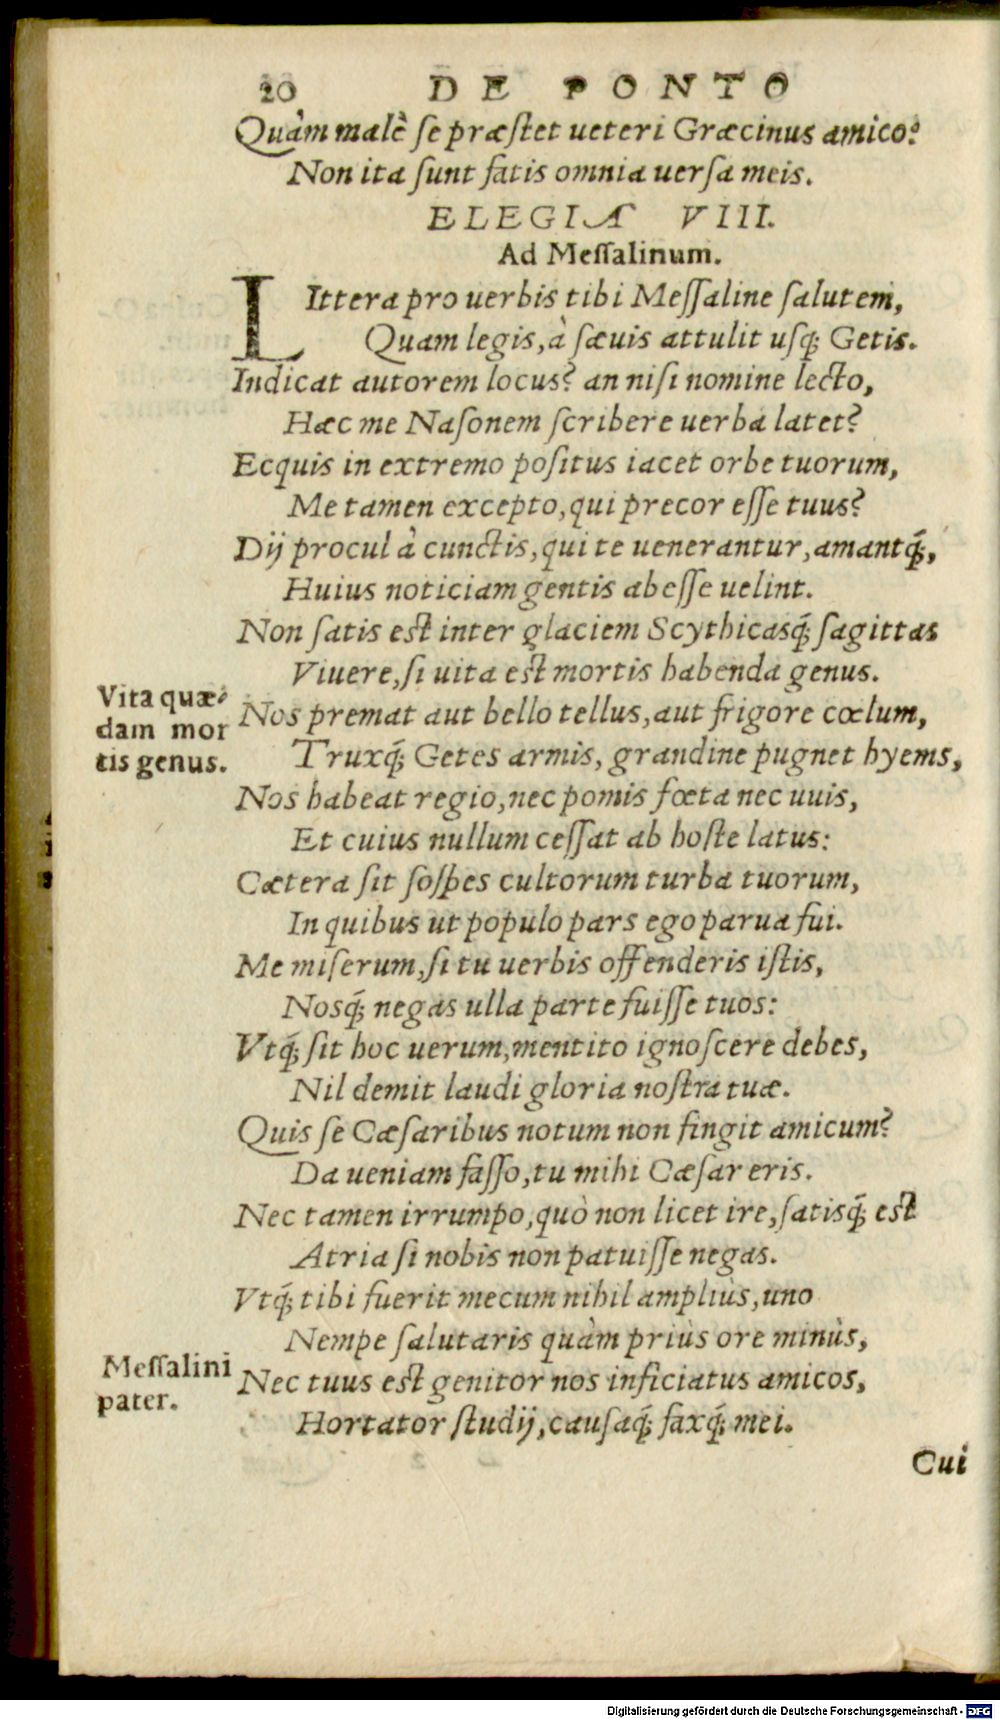 20 DE PONTO
Quàm malè se præstet ueteri Græcinus amico?
Non ita sunt fatis omnia uersa meis.
ELEGIA VIII.
Ad Messalinum.
LIttera pro uerbis tibi Messaline salutem,
Quam legis, à sæuis attulit usq; Getis.
Indicat autorem locus? an nisi nomine lecto,
Hæc me Nasonem scribere uerba latet?
Ecquis in extremo positus iacet orbe tuorum,
Me tamen excepto, qui precor esse tuus?
Dij procul à cunctis, qui te uenerantur, amantq́;,
Huius noticiam gentis abesse uelint.
Non satis est inter glaciem Scythicasq́; sagittas
Viuere, si uita est mortis habenda genus.
Vita quæ-
dam mor
tis genus.
Nos premat aut bello tellus, aut frigore cœlum,
Truxq́; Getes armis, grandine pugnet hyems,
Nos habeat regio, nec pomis fœta nec uuis,
Et cuius nullum cessat ab hoste latus:
Cætera sit sospes cultorum turba tuorum,
In quibus ut populo pars ego parua fui.
Me miserum, si tu uerbis offenderis istis,
Nosq́; negas ulla parte fuisse tuos:
Vtq́; sit hoc uerum, mentito ignoscere debes,
Nil demit laudi gloria nostra tuæ.
Quis se Cæsaribus notum non fingit amicum?
Da ueniam fasso, tu mihi Cæsar eris.
Nec tamen irrumpo, quò non licet ire, satisq́; est
Atria si nobis non patuisse negas.
Vtq́; tibi fuerit mecum nihil ampliùs, uno
Nempe salutaris quàm priùs ore minùs,
Messalini
pater.
Nec tuus est genitor nos inficiatus amicos,
Hortator studij, causaq́; faxq́; mei.
Cui
Digitalisierung gefördert durch die Deutsche Forschungsgemeinschaft - DFG